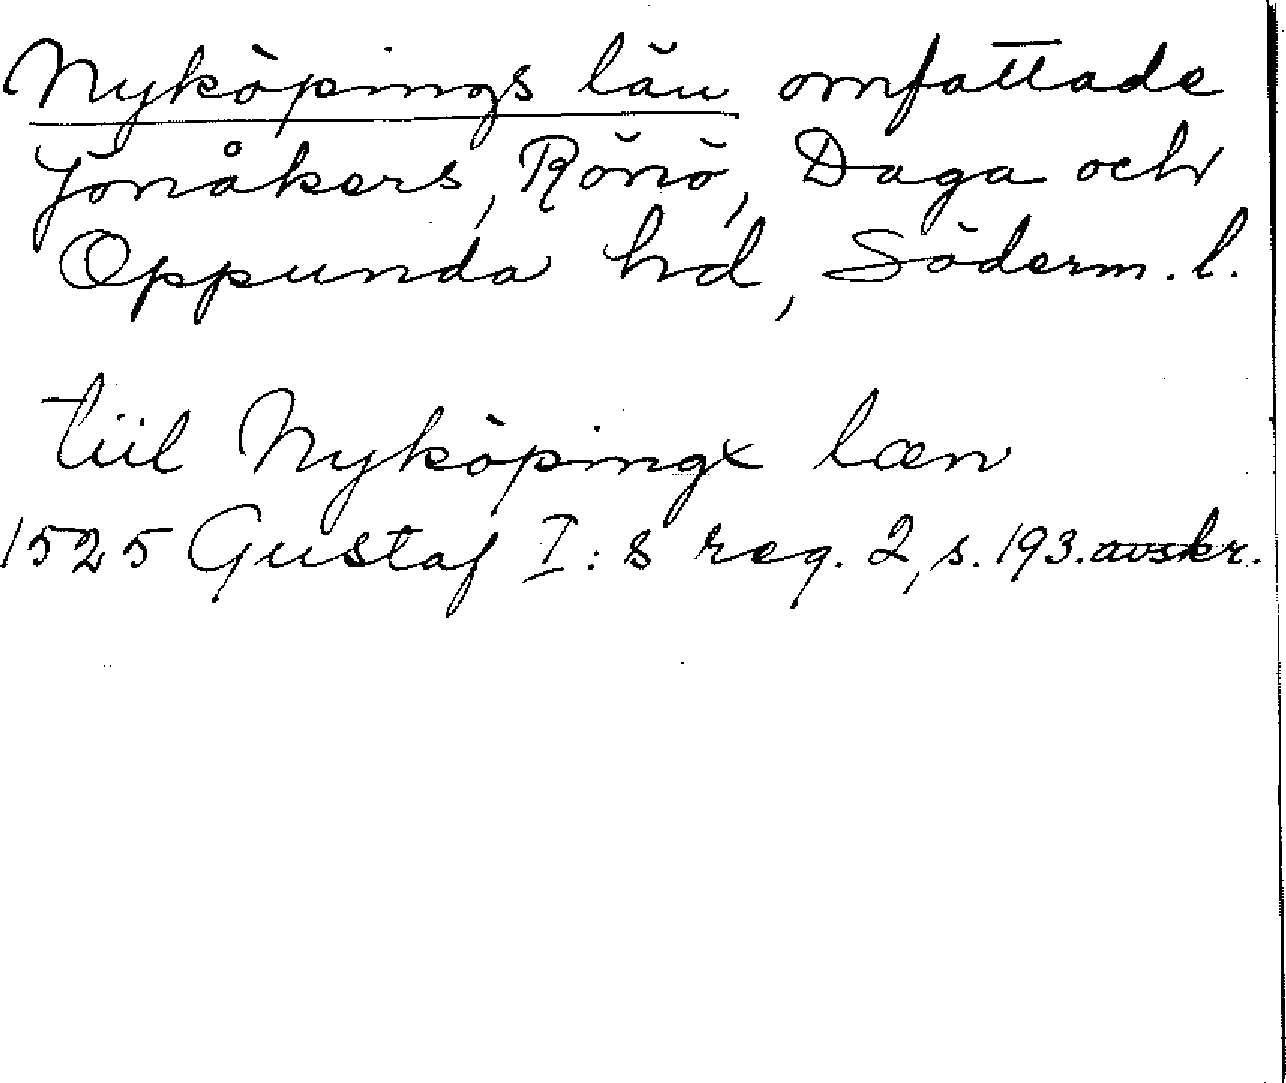 Nyköpings län omfattade
Jönåkers, Rönö, Daga och
Oppunda hd, Söderm. l.
tiil Nyköpingx læn
1525 Gustaf I:s reg. 2, s. 193. avskr.